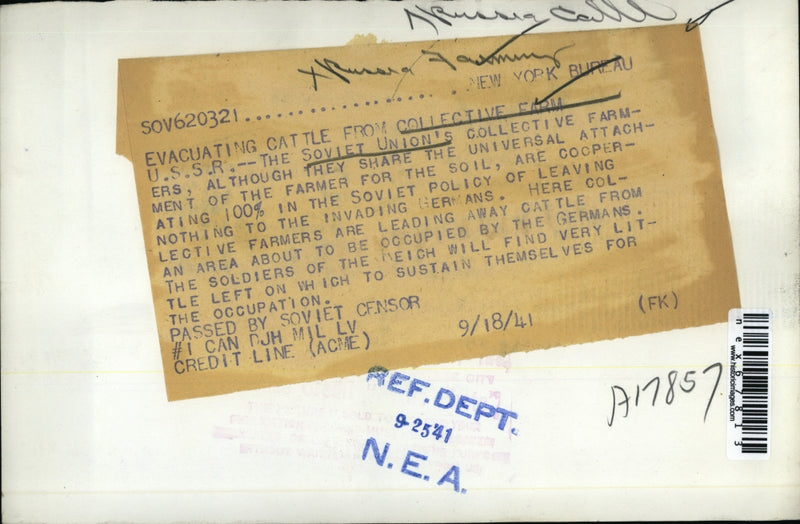 Russia Cattle
x Russia Farming
NEW YORK BUREAU
SOV620321....................
EVACUATING CATTLE FROM COLLECTIVE FARM
U.S.S.R.--THE SOVIET UNION'S COLLECTIVE FARM-
ERS, ALTHOUGH THEY SHARE THE UNIVERSAL ATTACH-
MENT OF THE FARMER FOR THE SOIL, ARE COOPER-
ATING 100% IN THE SOVIET POLICY OF LEAVING
NOTHING TO THE INVADING GERMANS. HERE COL-
LECTIVE FARMERS ARE LEADING AWAY CATTLE FROM
AN AREA ABOUT TO BE OCCUPIED BY THE GERMANS.
THE SOLDIERS OF THE REICH WILL FIND VERY LIT-
TLE LEFT ON WHICH TO SUSTAIN THEMSELVES FOR
THE OCCUPATION.
PASSED BY SOVIET CENSOR
#1 CAN DJH MIL LV 9/18/41 (FK)
CREDIT LINE (ACME)
REF. DEPT.
9-25 41
N. E. A.
A17857
nex67813
www.historicimages.com